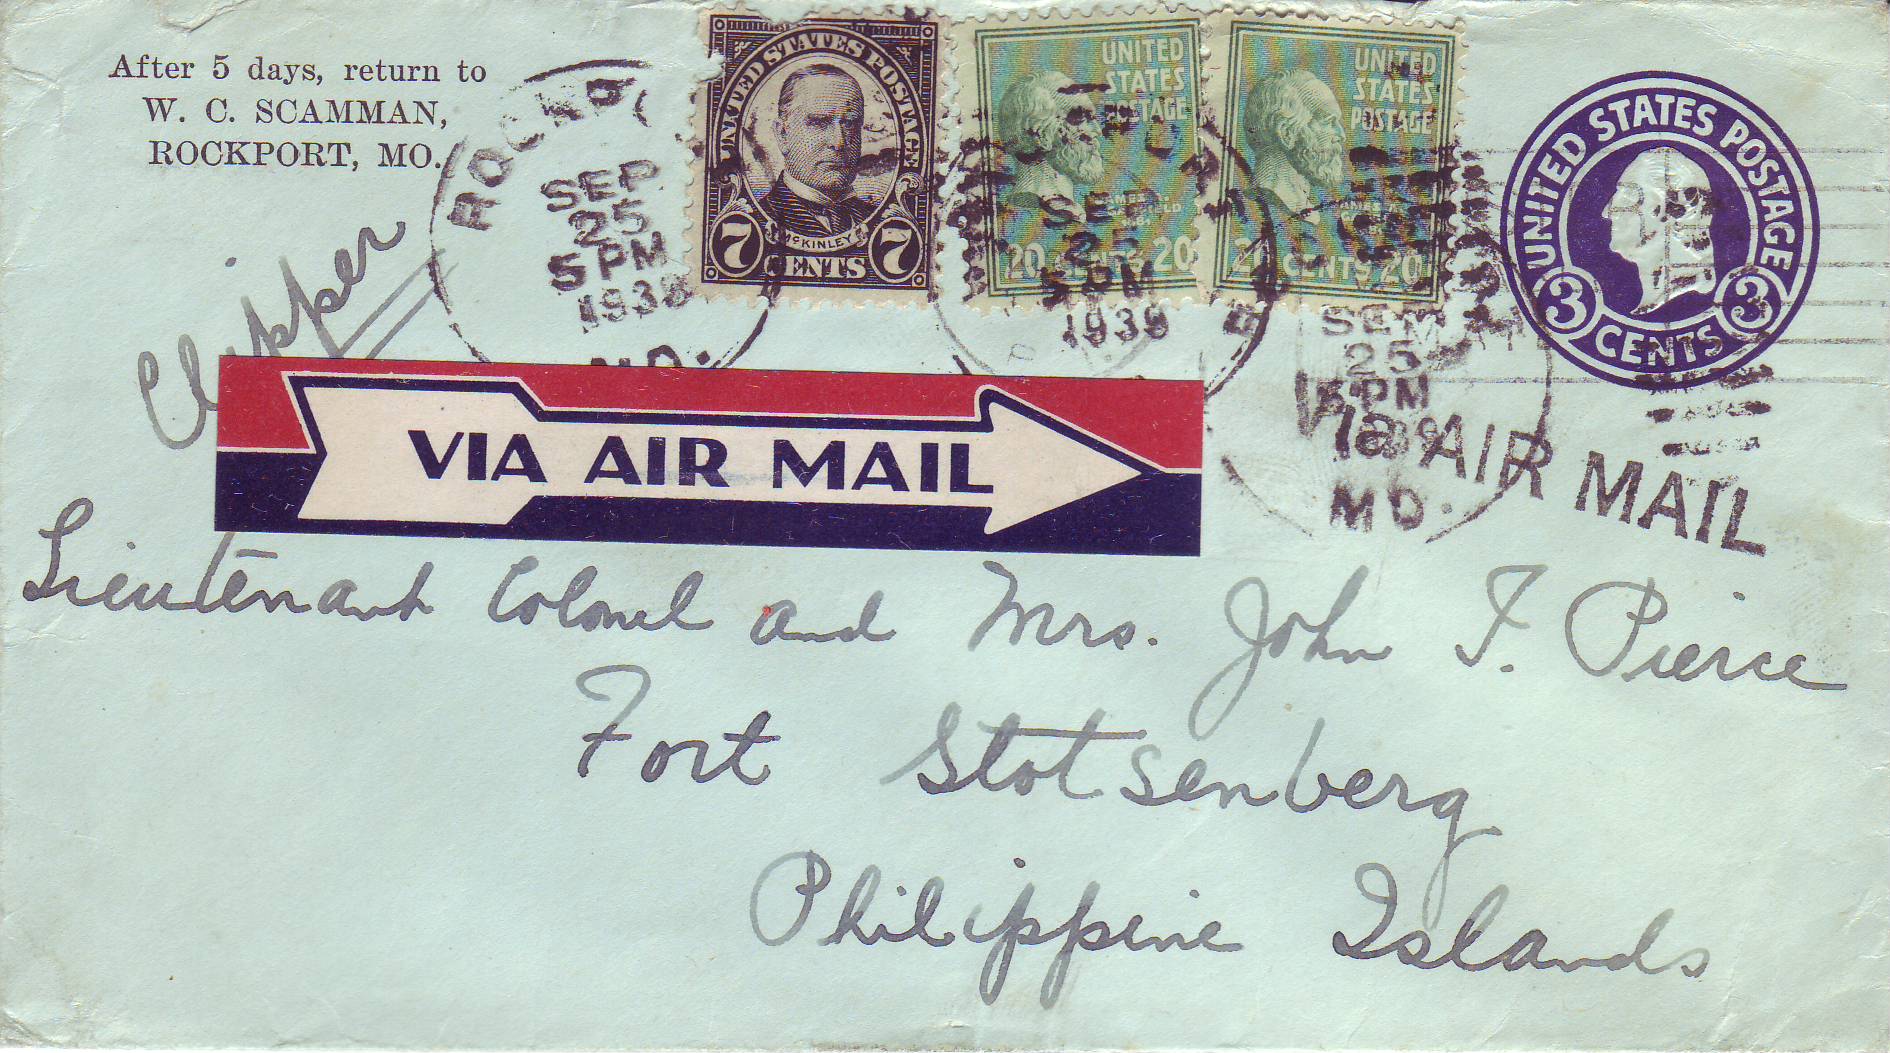 After 5 days, return to
W. C. SCAMMAN,
ROCKPORT, MO.
Clipper
ROCKPO
SEP
25
5 PM
1939
MO.
UNITED STATES POSTAGE
McKINLEY
7 CENTS 7
UNITED
STATES
POSTAGE
20 CENTS 20
SEP
25
5 PM
1939
UNITED
STATES
POSTAGE
20 CENTS 20
SEP
25
5 PM
MO.
UNITED STATES POSTAGE
3 CENTS 3
VIA AIR MAIL
Via AIR MAIL
Lieutenant Colonel and Mrs. John T. Pierce
Fort Stotsenberg
Philippine Islands